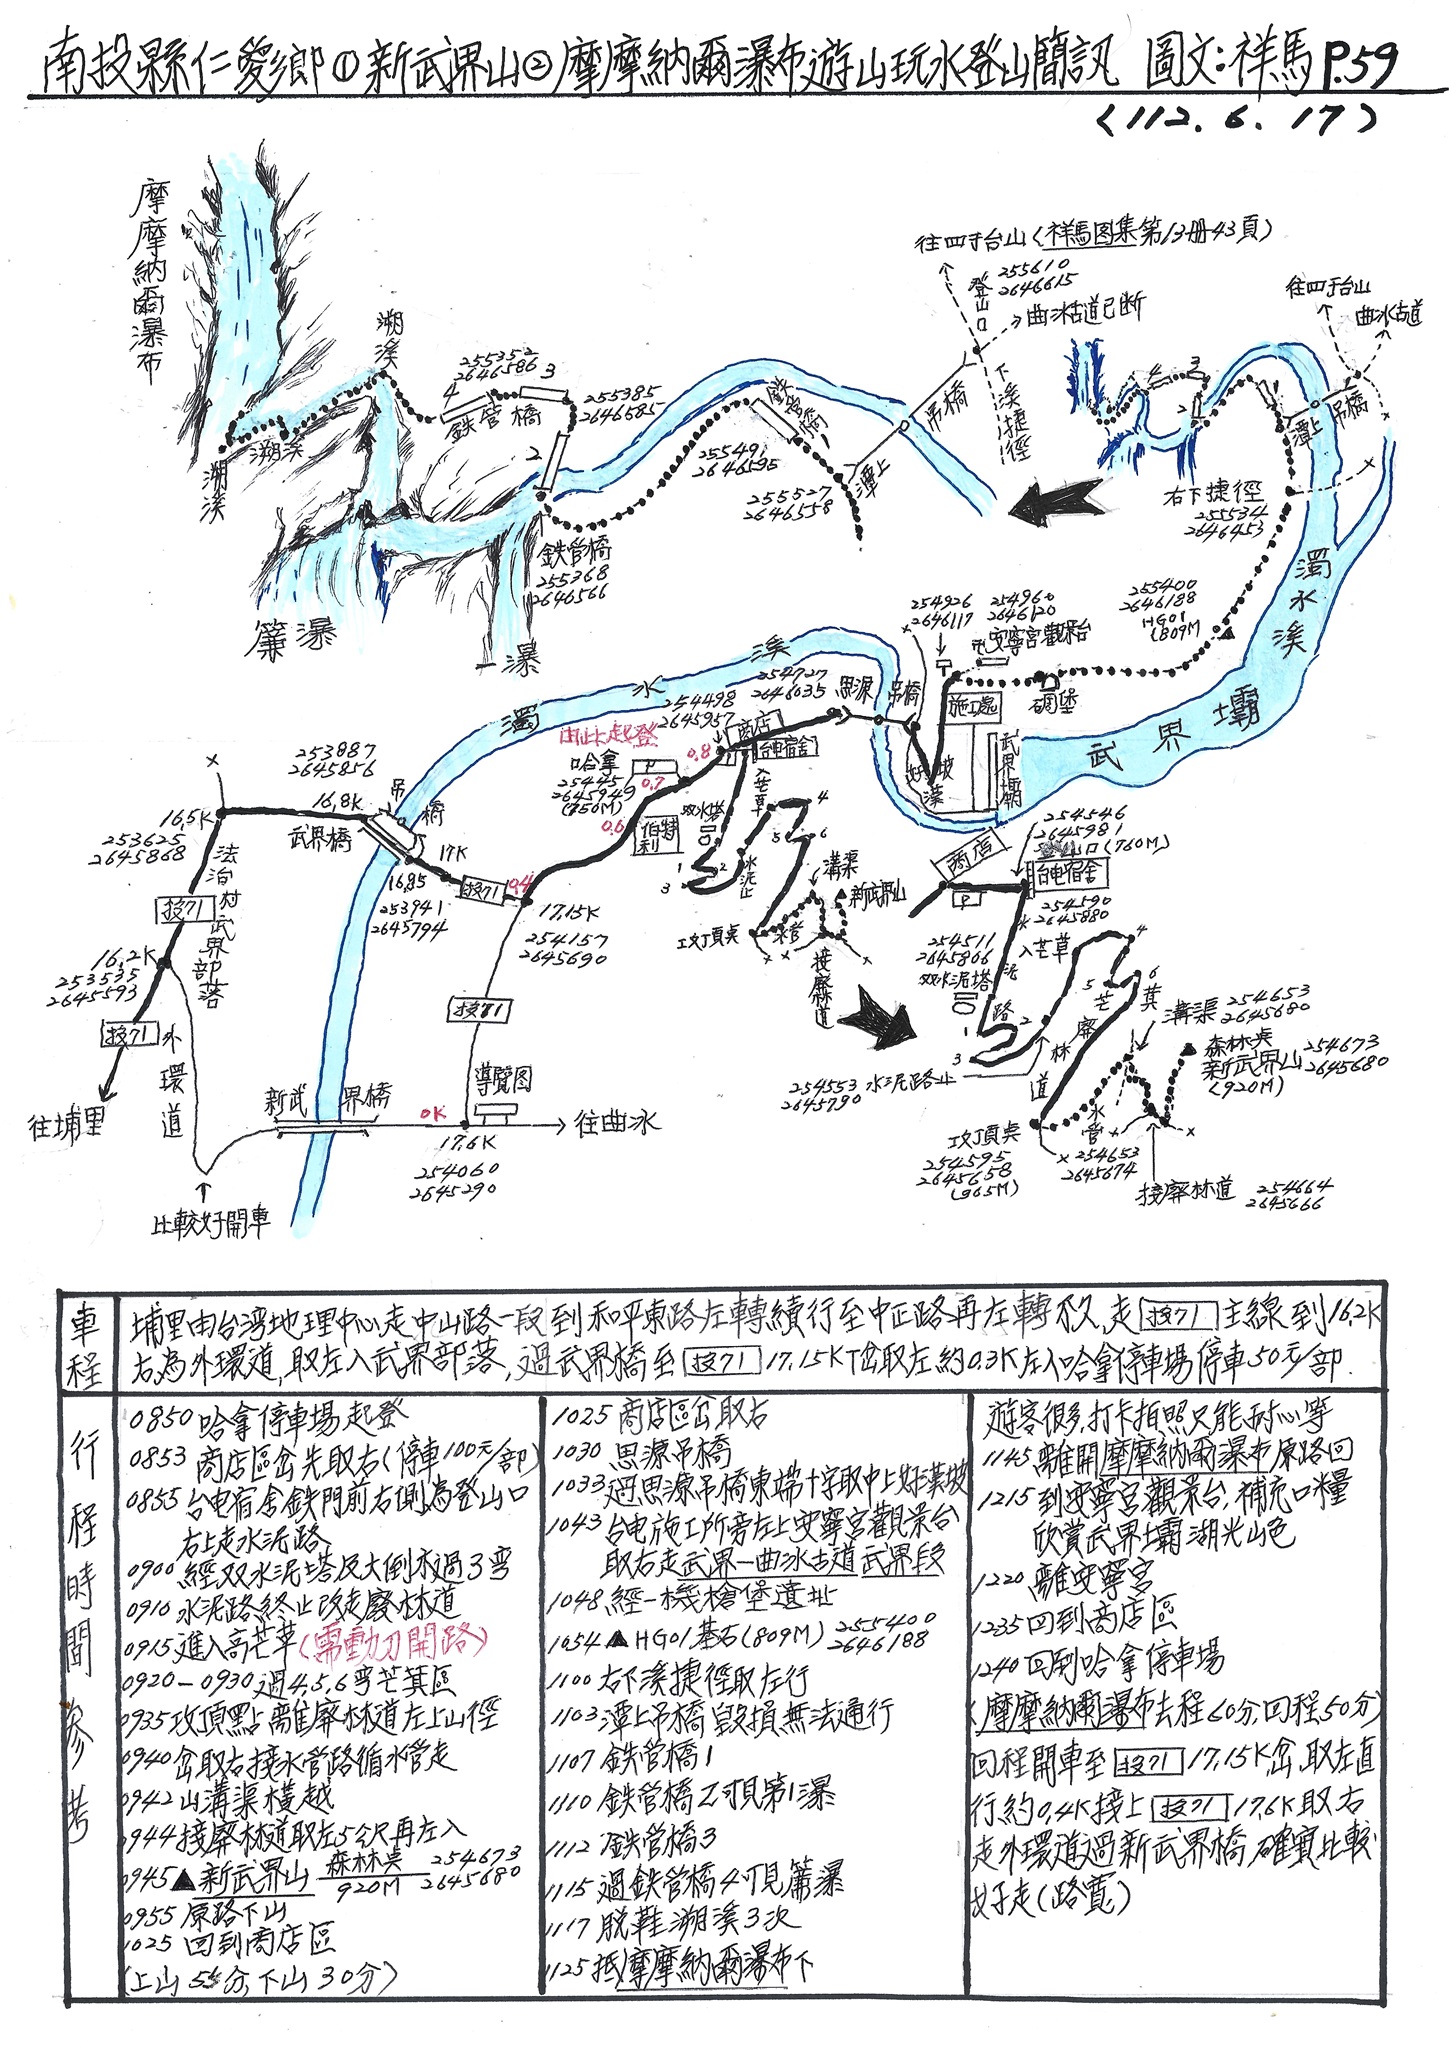 南投縣仁愛鄉①新武界山②摩摩納爾瀑布遊山玩水登山簡訊 圖文:祥馬 P.59
(112.6.17)
摩摩納爾瀑布
溯溪
溯溪
溯溪
255352
2646586
4
鉄管橋
3
255385
2646585
2
鉄管橋
255368
2646566
簾瀑
一瀑
255491
2646595
255527
2646558
潭上
吊橋
往四子台山(祥馬图集第13册43頁)
登山口
255610
2646615
曲冰古道已断
下溪捷徑
往四子台山
曲冰古道
4
3
2
潭上
吊橋
右下捷徑
255534
2646453
濁水溪
255400
2646188
HG01
(809M)
254926
2646117
254960
2646120
安寧宮觀景台
碉堡
施工處
武界壩
武界壩
好漢坡
吊橋
思源
254727
2646035
濁水溪
254498
2645957
商店
台电宿舍
由此起登
0.8
哈拿
P
25445
2645949
(750M)
0.7
0.6
伯特利
双水塔
入芒草
水泥止
1
2
3
4
5
6
溝渠
新武界山
攻頂点
水管
接廢林道
253887
2645856
吊橋
16.8K
武界橋
16.5K
253625
2645868
法治村武界部落
投71
16.2K
253535
2645593
投71
往埔里
外環道
比較好開車
17K
16.85
253941
2645794
投71
0.4
17.15K
254157
2645690
投71
導覽図
新武界橋
0K
17.6K
254060
2645290
往曲冰
商店
P
254546
2645981
(760M)
台电宿舍
254590
2645880
254511
2645866
双水泥塔
水泥路
入芒草
1
2
3
4
5
6
芒萁
廢林道
254553
2645790
水泥路止
溝渠 254653
2645680
森林点
新武界山
(920M)
254673
2645680
攻頂点
254595
2645658
(965M)
水管
254653
2645674
接廢林道 254664
2645666
車程
埔里由台湾地理中心走中山路一段到和平東路左轉續行至中正路再左轉不久,走投71主線到16.2K
右為外環道,取左入武界部落,過武界橋至投71 17.15K T岔取左約0.3K左入哈拿停車場停車50元/部.
行程時間參考
0850哈拿停車場起登
0853商店區岔先取右(停車100元/部)
0855台电宿舍鉄門前右側為登山口
右上走水泥路,
0900經双水泥塔及大倒木過3弯
0910水泥路終止改走廢林道
0915進入高芒草(需動刀開路)
0920-0930過4.5.6弯芒萁區
0935攻頂點離廢林道左上山徑
0940岔取右接水管路循水管走
0942山溝渠橫越
0944接廢林道取左5公尺再左入
0945▲新武界山 森林点 920M 254673 2645680
0955原路下山
1025回到商店區
(上山55分,下山30分)
1025商店區岔取右
1030思源吊橋
1033過思源吊橋東端十字取中上好漢坡
1043台电施工所旁左上安寧宮觀景台
取右走武界-曲冰古道武界段
1048經一機槍堡遺址
1054▲HG01基石(809M) 255400 2646188
1100右下溪捷徑取左行
1103潭上吊橋毀損無法通行
1107鉄管橋1
1110鉄管橋2可見第1瀑
1112鉄管橋3
1115過鉄管橋4可見簾瀑
1117脫鞋溯溪3次
1125抵摩摩納爾瀑布下
遊客很多,打卡拍照只能耐心等
1145離開摩摩納爾瀑布原路回
1215到安寧宮觀景台,補充口糧
欣賞武界壩湖光山色
1220離安寧宮
1235回到商店區
1240回到哈拿停車場
(摩摩納爾瀑布去程60分,回程50分)
回程開車至投71 17.15K岔,取左直
行約0.4K接上投71 17.6K取右
走外環道過新武界橋,確實比較
好走(路寬)